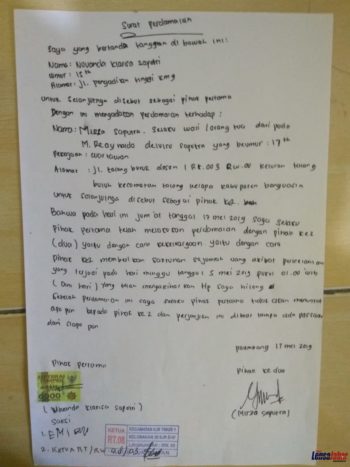 Surat perdamaian
Saya yang bertanda tanggan di bawah ini:
Nama: Novanda Klarisa Saputri
Umur: 15th
Alamat: jl. pengadilan tinggi km9
untuk selanjutnya disebut sebagai pihak pertama
Dengan ini mengadakan perdamaian terhadap:
Nama: Mirza Saputra. Selaku wali/orang tua dari pada
M. Reaynaldo saputra yang berumur: 17th
Pekerjaan: wartawan
Alamat: jl. talang buruk dusun 1 RT.003 RW.01 talang
buruk kecamatan talang kelapa kabupaten banyuasin
untuk selanjutnya disebut sebagai pihak ke2.
Bahwa pada hari ini jum'at tanggal 17 mei 2019 saya selaku
pihak pertama telah melakukan perdamaian dengan pihak ke2
(dua) yaitu dengan cara kekeluargaan yaitu dengan cara
pihak ke2 memberikan santunan sejumlah uang akibat
yang terjadi pada hari minggu tanggal 5 mei 2019 pukul 01.00
(Dini hari) yang telah mengakibatkan Hp saya hilang
Setelah perdamaian ini saya selaku pihak pertama tidak akan menuntut
apa pun kepada pihak ke2 dan perjanjian ini dibuat tanpa ada paksaan
dari siapa pun
palembang 17 mei 2019
Pihak pertama
Pihak kedua
6000
(Novanda Klarisa Saputri)
(Mirza saputra)
Saksi
1. EMI
2. Ketua RT/RW
KETUA
RT.08
KECAMATAN
KELURAHAN